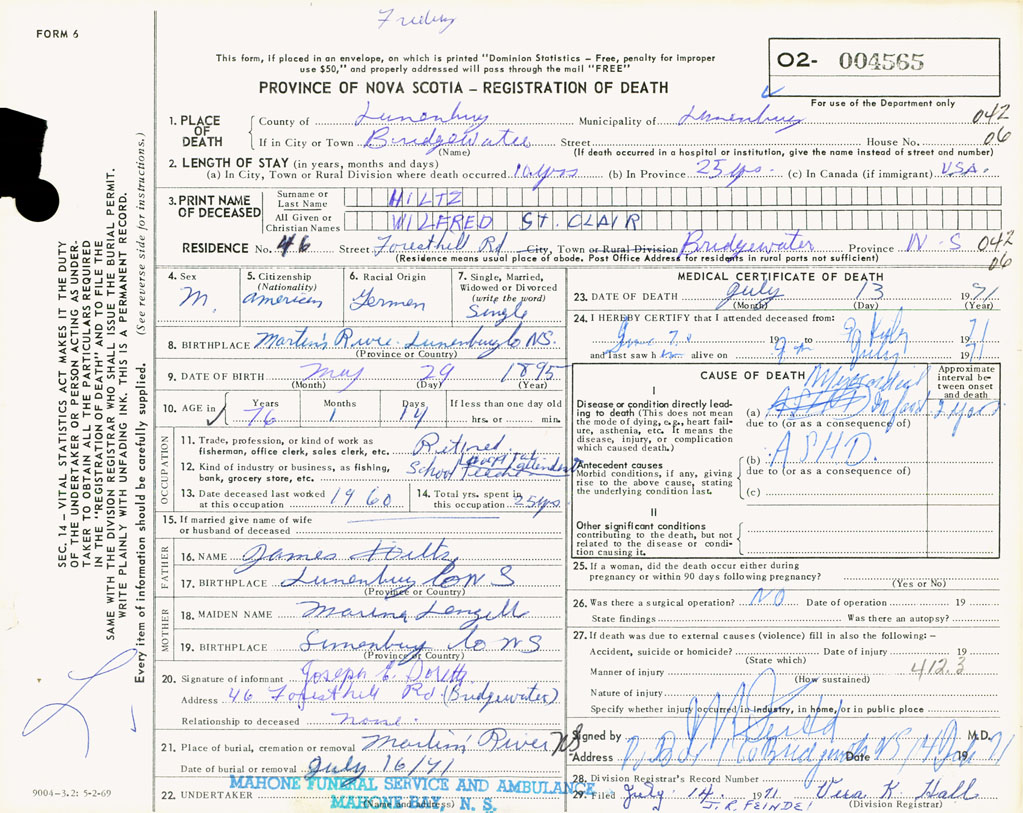 FORM 6
This form, if placed in an envelope, on which is printed "Dominion Statistics – Free, penalty for improper
use $50," and properly addressed will pass through the mail "FREE"
O2- 004565
PROVINCE OF NOVA SCOTIA – REGISTRATION OF DEATH
For use of the Department only
1. PLACE OF DEATH
County of Lunenburg Municipality of Lunenburg 042
If in City or Town Bridgewater Street House No. 06
(Name) (If death occurred in a hospital or institution, give the name instead of street and number)
2. LENGTH OF STAY (in years, months and days)
(a) In City, Town or Rural Division where death occurred 10 yrs (b) In Province 25 yrs. (c) In Canada (if immigrant) USA.
3. PRINT NAME OF DECEASED
Surname or Last Name HILTZ
All Given or Christian Names WILFRED ST. CLAIR
RESIDENCE No. 46 Street Foresthill Rd City, Town or Rural Division Bridgewater Province N.S 042
(Residence means usual place of abode. Post Office Address for residents in rural parts not sufficient) 06
4. Sex M.
5. Citizenship (Nationality) American
6. Racial Origin German
7. Single, Married, Widowed or Divorced (write the word) Single
8. BIRTHPLACE Martin's River Lunenburg Co NS.
(Province or Country)
9. DATE OF BIRTH May 29 1895
(Month) (Day) (Year)
10. AGE in Years 76 Months 1 Days 14 If less than one day old hrs. or min.
OCCUPATION
11. Trade, profession, or kind of work as
fisherman, office clerk, sales clerk, etc. Retired
12. Kind of industry or business, as fishing,
bank, grocery store, etc. School Teacher attendent
13. Date deceased last worked at this occupation 1960
14. Total yrs. spent in this occupation 25 yrs
15. If married give name of wife
or husband of deceased
FATHER
16. NAME James Hiltz
17. BIRTHPLACE Lunenburg Co N S
(Province or Country)
MOTHER
18. MAIDEN NAME
19. BIRTHPLACE Lunenburg Co N S
(Province or Country)
20. Signature of informant Joseph E.
Address 46 Foresthill Rd (Bridgewater)
Relationship to deceased None.
21. Place of burial, cremation or removal Martin's River NS.
Date of burial or removal July 16/71
22. UNDERTAKER
(Name and address)
MAHONE FUNERAL SERVICE AND AMBULANCE
MAHONE BAY, N. S.
MEDICAL CERTIFICATE OF DEATH
23. DATE OF DEATH July 13 1971
(Month) (Day) (Year)
24. I HEREBY CERTIFY that I attended deceased from:
to 1971
and last saw h im alive on July 1971
CAUSE OF DEATH
Approximate interval between onset and death
I
Disease or condition directly leading to death (This does not mean
the mode of dying, e.g., heart failure, asthenia, etc. It means the
disease, injury, or complication
which caused death.)
(a) Myocardial Infarct
due to (or as a consequence of)
Antecedent causes
Morbid conditions, if any, giving
rise to the above cause, stating
the underlying condition last.
(b) ASHD.
due to (or as a consequence of)
(c)
II
Other significant conditions
contributing to the death, but not
related to the disease or condition causing it.
25. If a woman, did the death occur either during
pregnancy or within 90 days following pregnancy?
(Yes or No)
26. Was there a surgical operation? NO Date of operation 19
State findings Was there an autopsy?
27. If death was due to external causes (violence) fill in also the following: –
Accident, suicide or homicide? Date of injury 19
(State which)
Manner of injury 412.3
(How sustained)
Nature of injury
Specify whether injury occurred in industry, in home, or in public place
Signed by M.D.
Address Bridgewater NS Date 14 1971
28. Division Registrar's Record Number
29. Filed July 14 1971 Vera K. Hall
J. R. FEINDEL (Division Registrar)
SEC. 14 – VITAL STATISTICS ACT MAKES IT THE DUTY
OF THE UNDERTAKER OR PERSON ACTING AS UNDER-
TAKER TO OBTAIN ALL THE PARTICULARS REQUIRED
IN THE "REGISTRATION OF DEATH" AND TO FILE THE
SAME WITH THE DIVISION REGISTRAR WHO SHALL ISSUE THE BURIAL PERMIT.
WRITE PLAINLY WITH UNFADING INK. THIS IS A PERMANENT RECORD.
Every item of information should be carefully supplied. (See reverse side for instructions.)
9004-3.2: 5-2-69